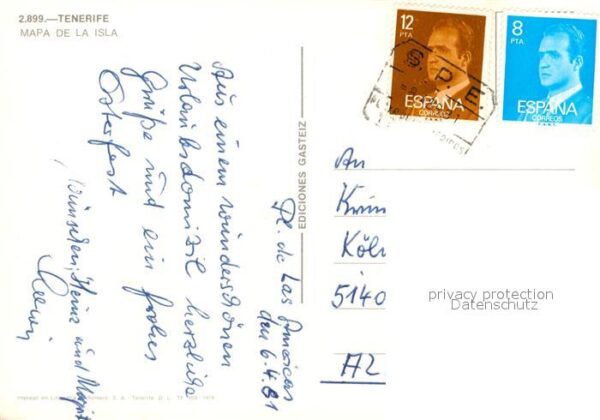 2.899.—TENERIFE
MAPA DE LA ISLA
12
PTA
ESPAÑA
CORREOS
8
PTA
ESPAÑA
CORREOS
S.P.E.
EDICIONES GASTEIZ
Pl. de Las Américas
den 6.4.81
Aus einem wunderschönen
Urlaubsdomizil herzliche
Grüße und ein frohes
Osterfest
wünschen, Heinz und
An
Köln
5140
privacy protection
Datenschutz